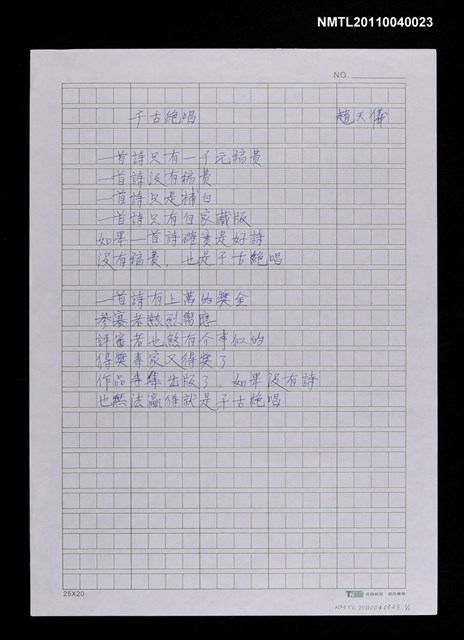 NMTL20110040023
NO.
千古絶唱 趙天儀
一首詩只有一千元稿費
一首詩沒有稿費
一首詩只是補白
一首詩只有自家藏版
如果一首詩確實是好詩
沒有稿費，也是千古絶唱
一首詩有上萬的獎金
參賽者熱烈響應
評審者也煞有介事似的
得獎專家又得獎了
作品專集出版了，如果沒有詩
也無法贏得就是千古絶唱
25X20
NMTL20110040023